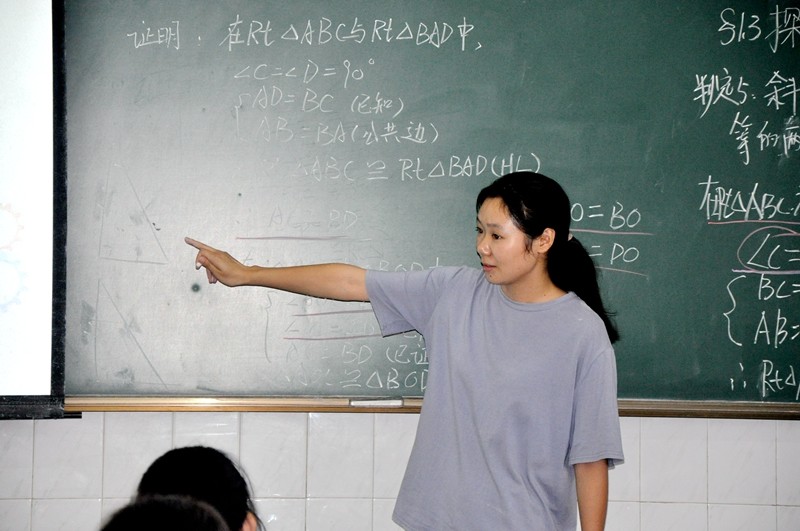 证明: 在Rt△ABC与Rt△BAD中,
∠C=∠D=90°
AD=BC (已知)
AB=BA(公共边)
△ABC≌Rt△BAD(HL)
AC=BD
O=BO
=DO
=BD (已证
≌△BOD
§1.3 探
判定5: 斜
等的两
在Rt△ABC
∠C=
BC=
AB=
∴Rt△